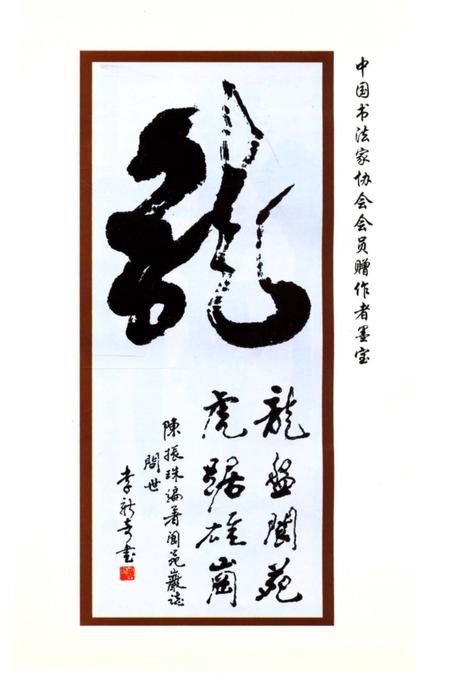 中国书法家协会会员赠作者墨宝
龍
龍盤閬苑
虎踞雄崗
陳振珠編著閬苑巖誌
問世
李新書